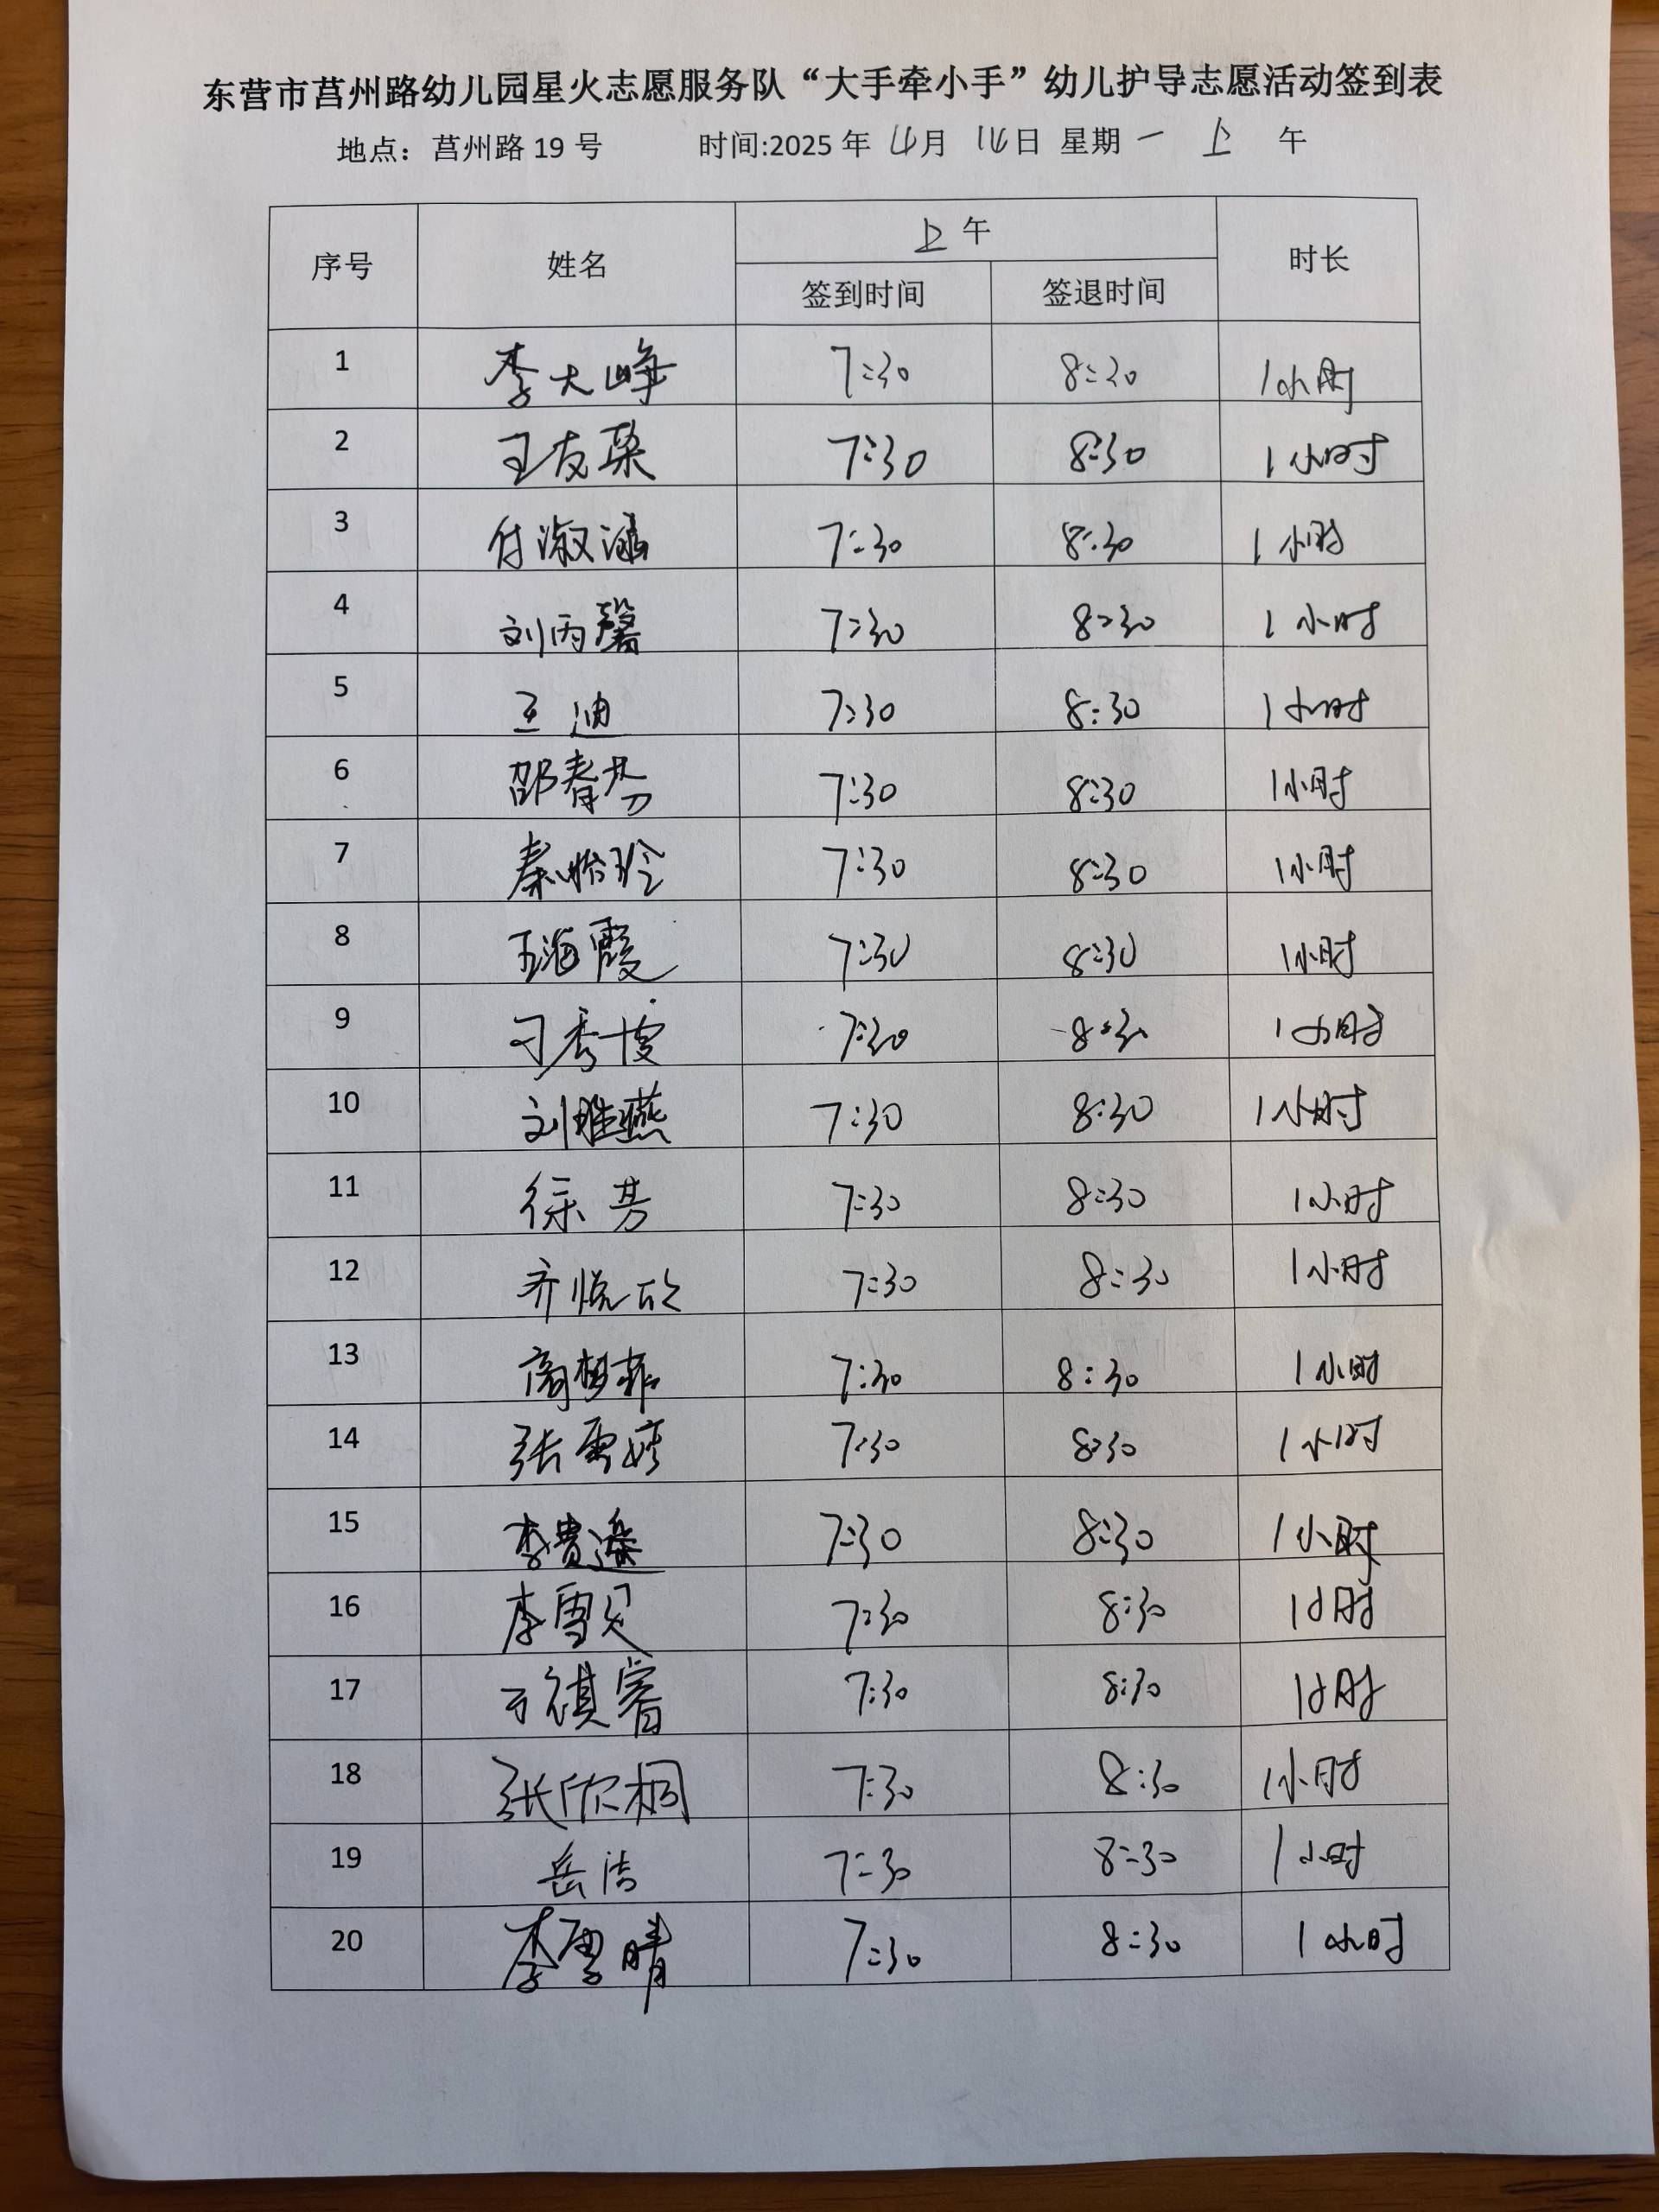 东营市莒州路幼儿园星火志愿服务队“大手牵小手”幼儿护导志愿活动签到表
地点：莒州路19号 时间:2025年4月14日 星期一 上 午
序号 姓名 上午 时长
签到时间 签退时间
1 李大峥 7:30 8:30 1小时
2 王友 7:30 8:30 1小时
3 付淑涵 7:30 8:30 1小时
4 刘丙馨 7:30 8:30 1小时
5 王迪 7:30 8:30 1小时
6 邵春 7:30 8:30 1小时
7 秦怡玲 7:30 8:30 1小时
8 王海霞 7:30 8:30 1小时
9 刁秀 7:30 8:30 1小时
10 刘雅燕 7:30 8:30 1小时
11 徐芳 7:30 8:30 1小时
12 齐悦欣 7:30 8:30 1小时
13 商梦菲 7:30 8:30 1小时
14 张雪婷 7:30 8:30 1小时
15 李贵 7:30 8:30 1小时
16 李雪 7:30 8:30 1小时
17 王祺睿 7:30 8:30 1小时
18 张欣桐 7:30 8:30 1小时
19 岳洁 7:30 8:30 1小时
20 李雪晴 7:30 8:30 1小时